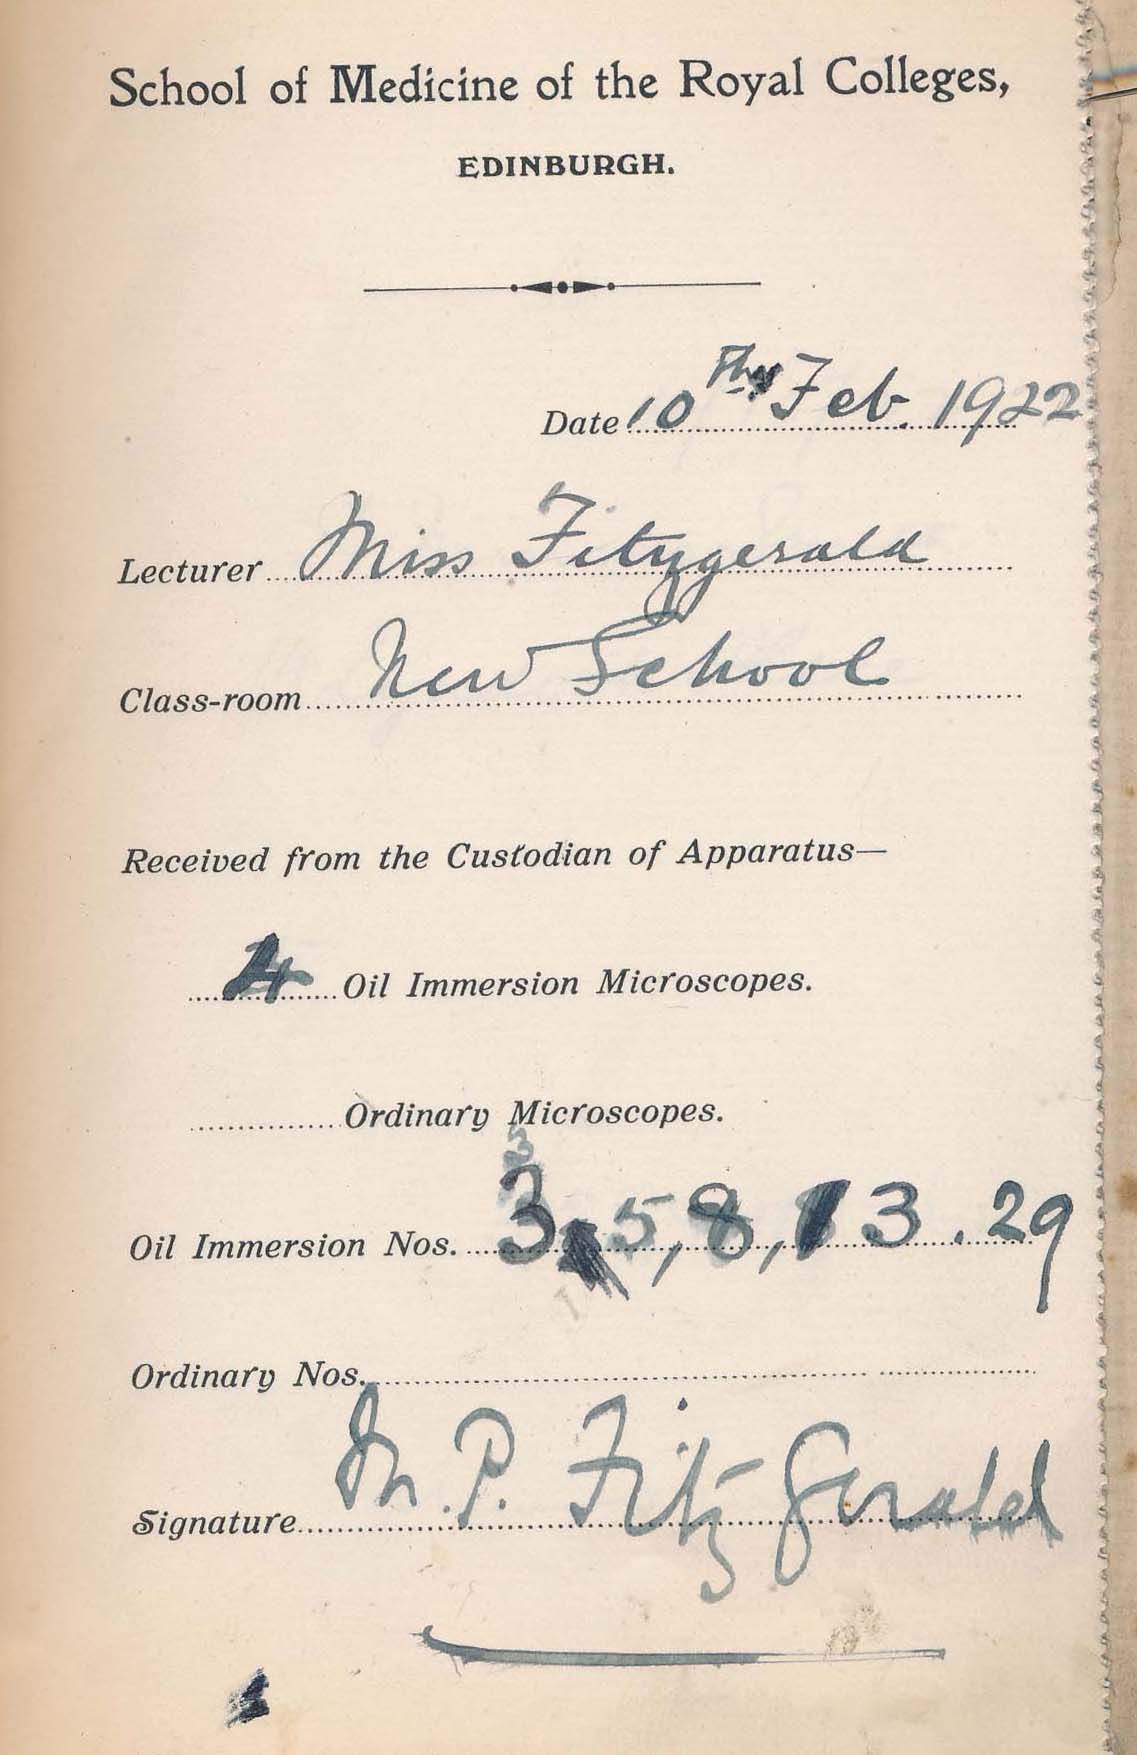 School of Medicine of the Royal Colleges,
EDINBURGH.
Date 10th Feb. 1922
Lecturer Miss Fitzgerald
Class-room New School
Received from the Custodian of Apparatus—
4 Oil Immersion Microscopes.
Ordinary Microscopes.
Oil Immersion Nos. 3, 5, 8, 13. 29
Ordinary Nos.
Signature M. P. FitzGerald